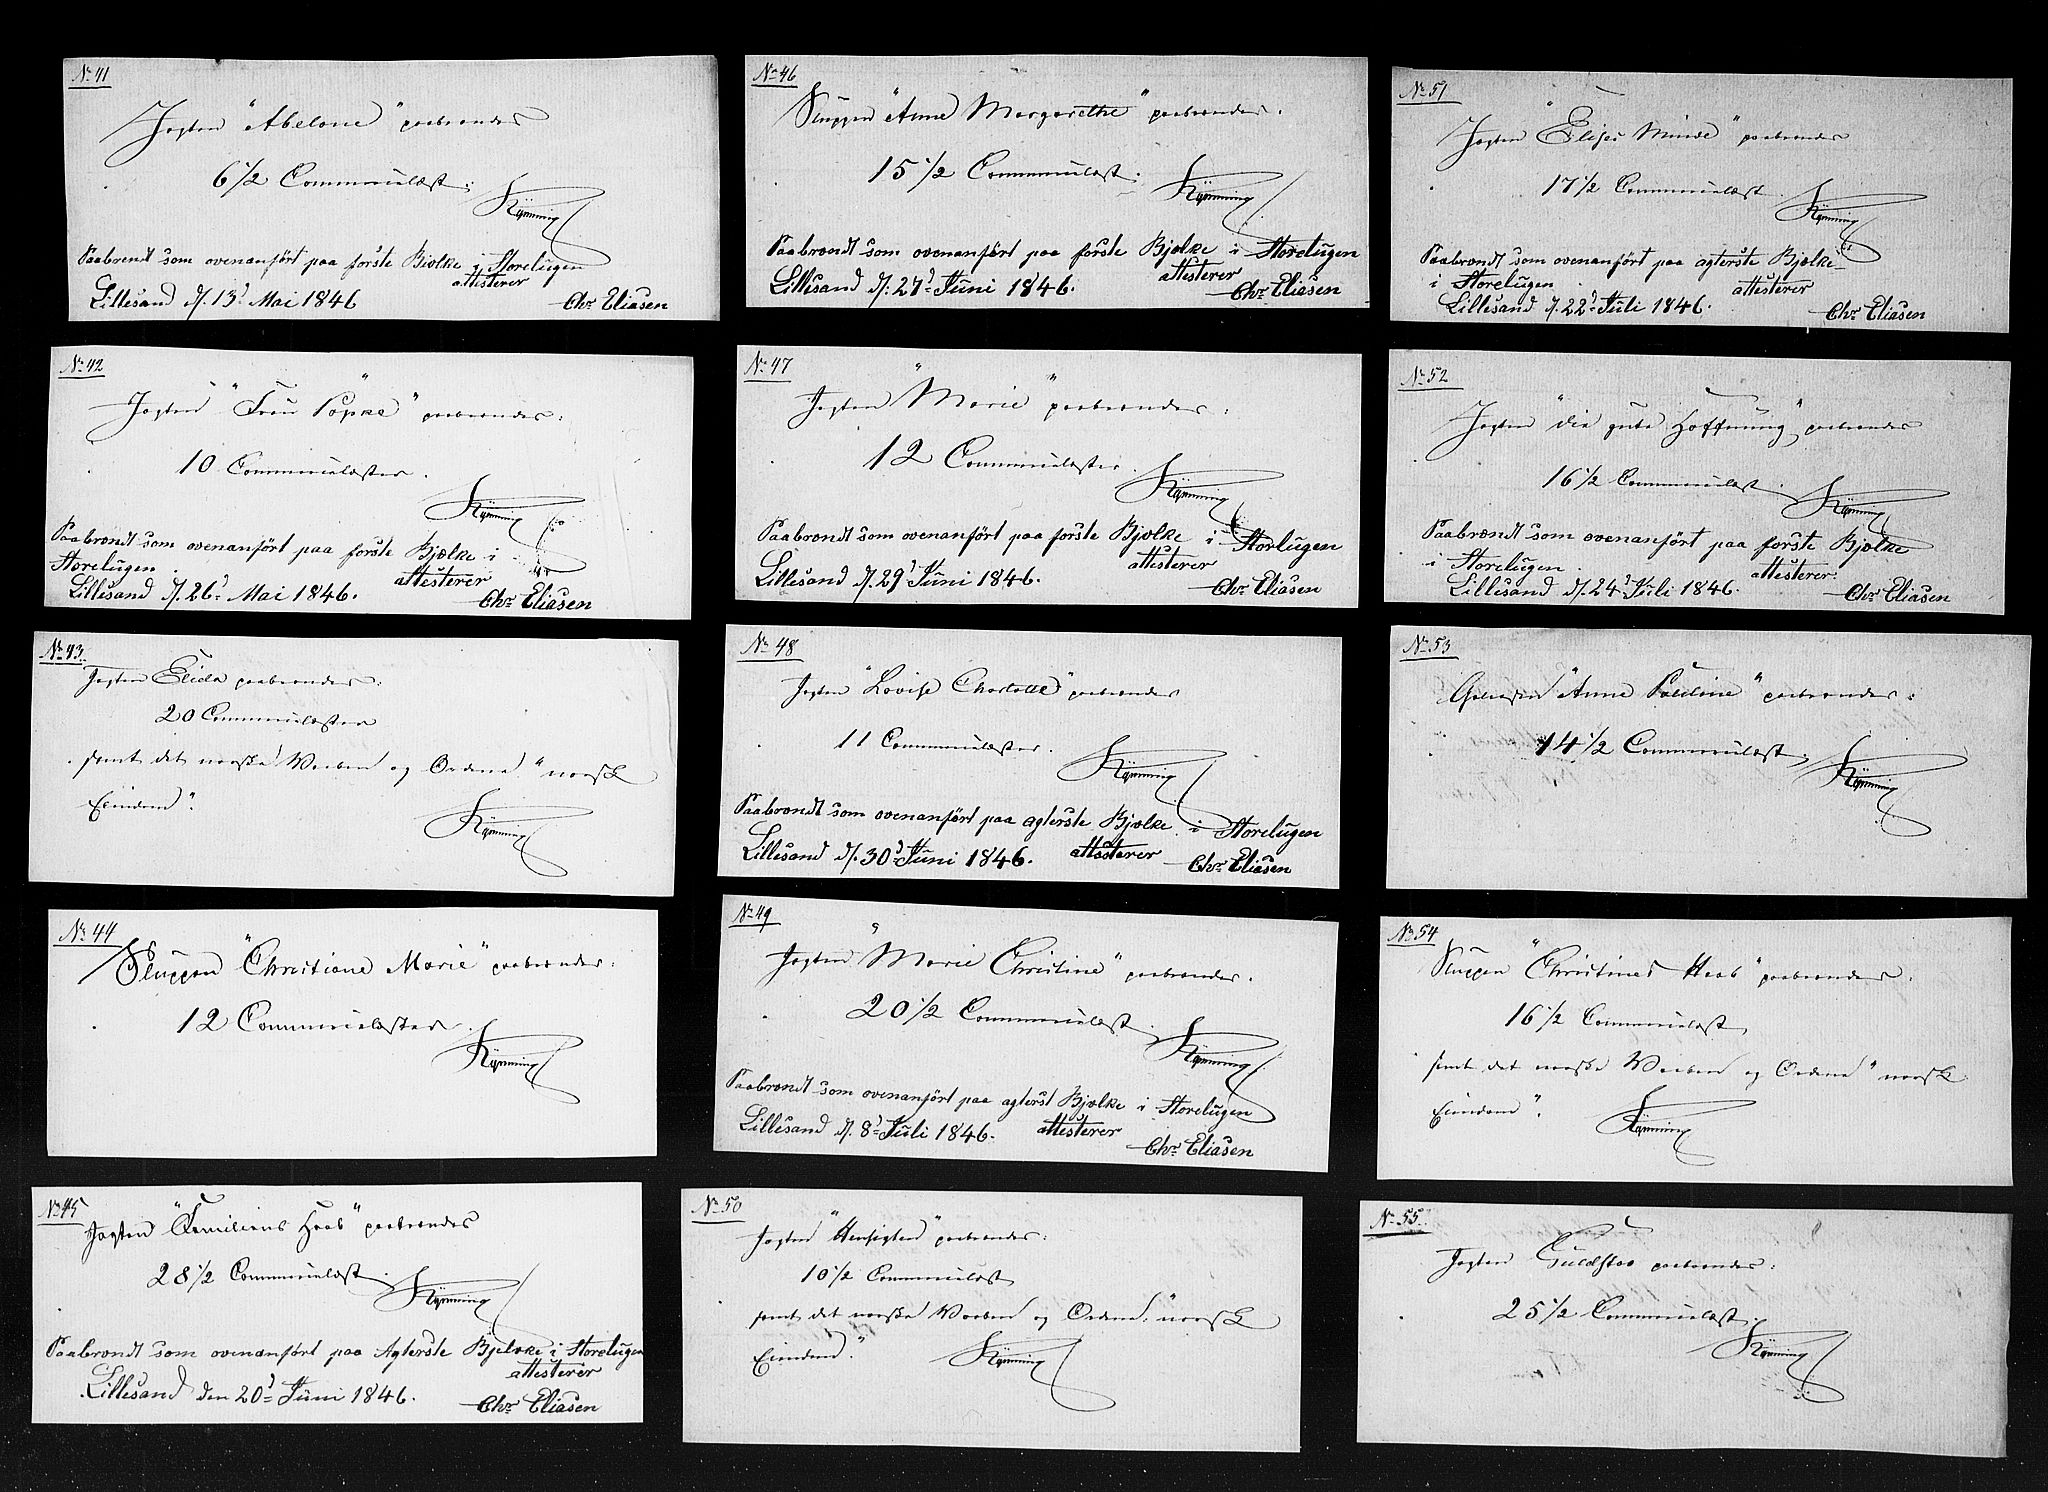 No 41
Jagten "Abelone" paabrændes
6 1/2 Commercelæst.
Kÿnning
Paabrændt som ovenanfört paa forste Bjelke i Storelugen
attesterer
Lillesand d/. 13d Mai 1846
Chr Eliasen
No 42
Jagten "Frau Pöpke" paabrændes:
10 Commercelæster.
Kÿnning
Paabrændt som ovenanfört paa forste Bjælke i
Storelugen.
attesterer
Lillesand d/. 26d Mai 1846.
Chr Eliasen
No 43.
Jagten Elida paabrændes:
20 Commercelæster
samt det norske Vaaben og Ordene "norsk
Eiendom".
Kÿnning
No 44
Sluppen "Christiane Marie" paabrændes:
12 Commercelæster.
Kÿnning
No 45
Jagten "Familiens Haab" paabrændes
28 1/2 Commercelæst.
Kÿnning
Paabrændt som ovenanfört paa Agterste Bjelke i Storelugen
attesterer
Lillesand den 20d Juni 1846.
Chr Eliasen
No 46
Sluppen "Anne Margarethe" paabrændes:
15 1/2 Commercelæst.
Kÿnning
Paabrændt som ovenanfört paa forste Bjælke i Storelugen
attesterer
Lillesand d/. 27d Juni 1846.
Chr Eliasen
No 47
Jagten "Marie" paabrændes:
12 Commercelæster.
Kÿnning
Paabrændt som ovenanfört paa forste Bjælke i Storlugen
attesterer
Lillesand d/. 29d Juni 1846.
Chr Eliasen
No 48
Jagten "Lovise Charlotte" paabrændes
11 Commercelæster.
Kÿnning
Paabrændt som ovenanfört paa agterste Bjælke i Storelugen
attesterer
Lillesand d/. 30d Juni 1846.
Chr Eliasen
No 49
Jagten "Marie Christine" paabrændes:
20 1/2 Commercelæst.
Kÿnning
Paabrændt som ovenanfört paa agterst Bjælke i Storelugen
Lillesand d/. 8d Juli 1846. attesterer
Chr Eliasen
No 50
Jagten "Hensigten" paabrændes:
10 1/2 Commercelæst
samt det norske Vaaben og Ordene: "norsk
Eiendom".
Kÿnning
No 51
Jagten "Elises Minde" paabrændes
17 1/2 Commercelæst.
Kÿnning
Paabrændt som ovenanfört paa agterste Bjælke
i Storelugen.
attesterer
Lillesand d/. 22d Juli 1846.
Chr Eliasen
No 52
Jagten "die gute Hoffnung" paabrændes
16 1/2 Commercelæst.
Kÿnning
Paabrændt som ovenanfört paa forste Bjælke
i Storelugen.
attesterer.
Lillesand d/. 24d Juli 1846.
Chr Eliasen
No 53
Galeasen "Anne Pauline" paabrændes:
14 1/2 Commercelæst.
Kÿnning
No 54
Sluppen "Christines Haab" paabrændes:
16 1/2 Commercelæst,
samt det norske Vaaben og Ordene "norsk
Eiendom".
Kÿnning
No 55.
Jagten Guldstad paabrændes:
25 1/2 Commercelæst.
Kÿnning